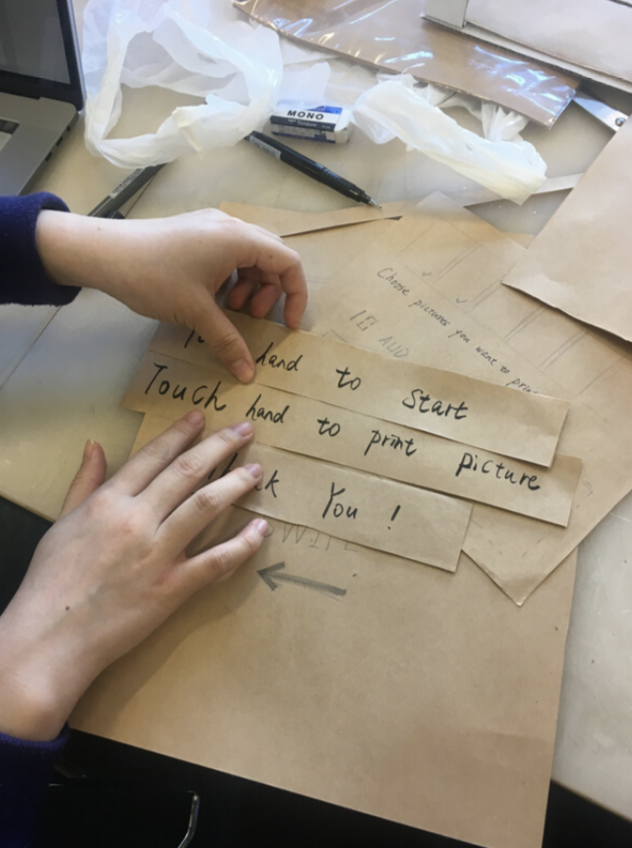 MONO
Choose pictures you want to print
IG AUD
hand to Start
Touch hand to print picture
You !